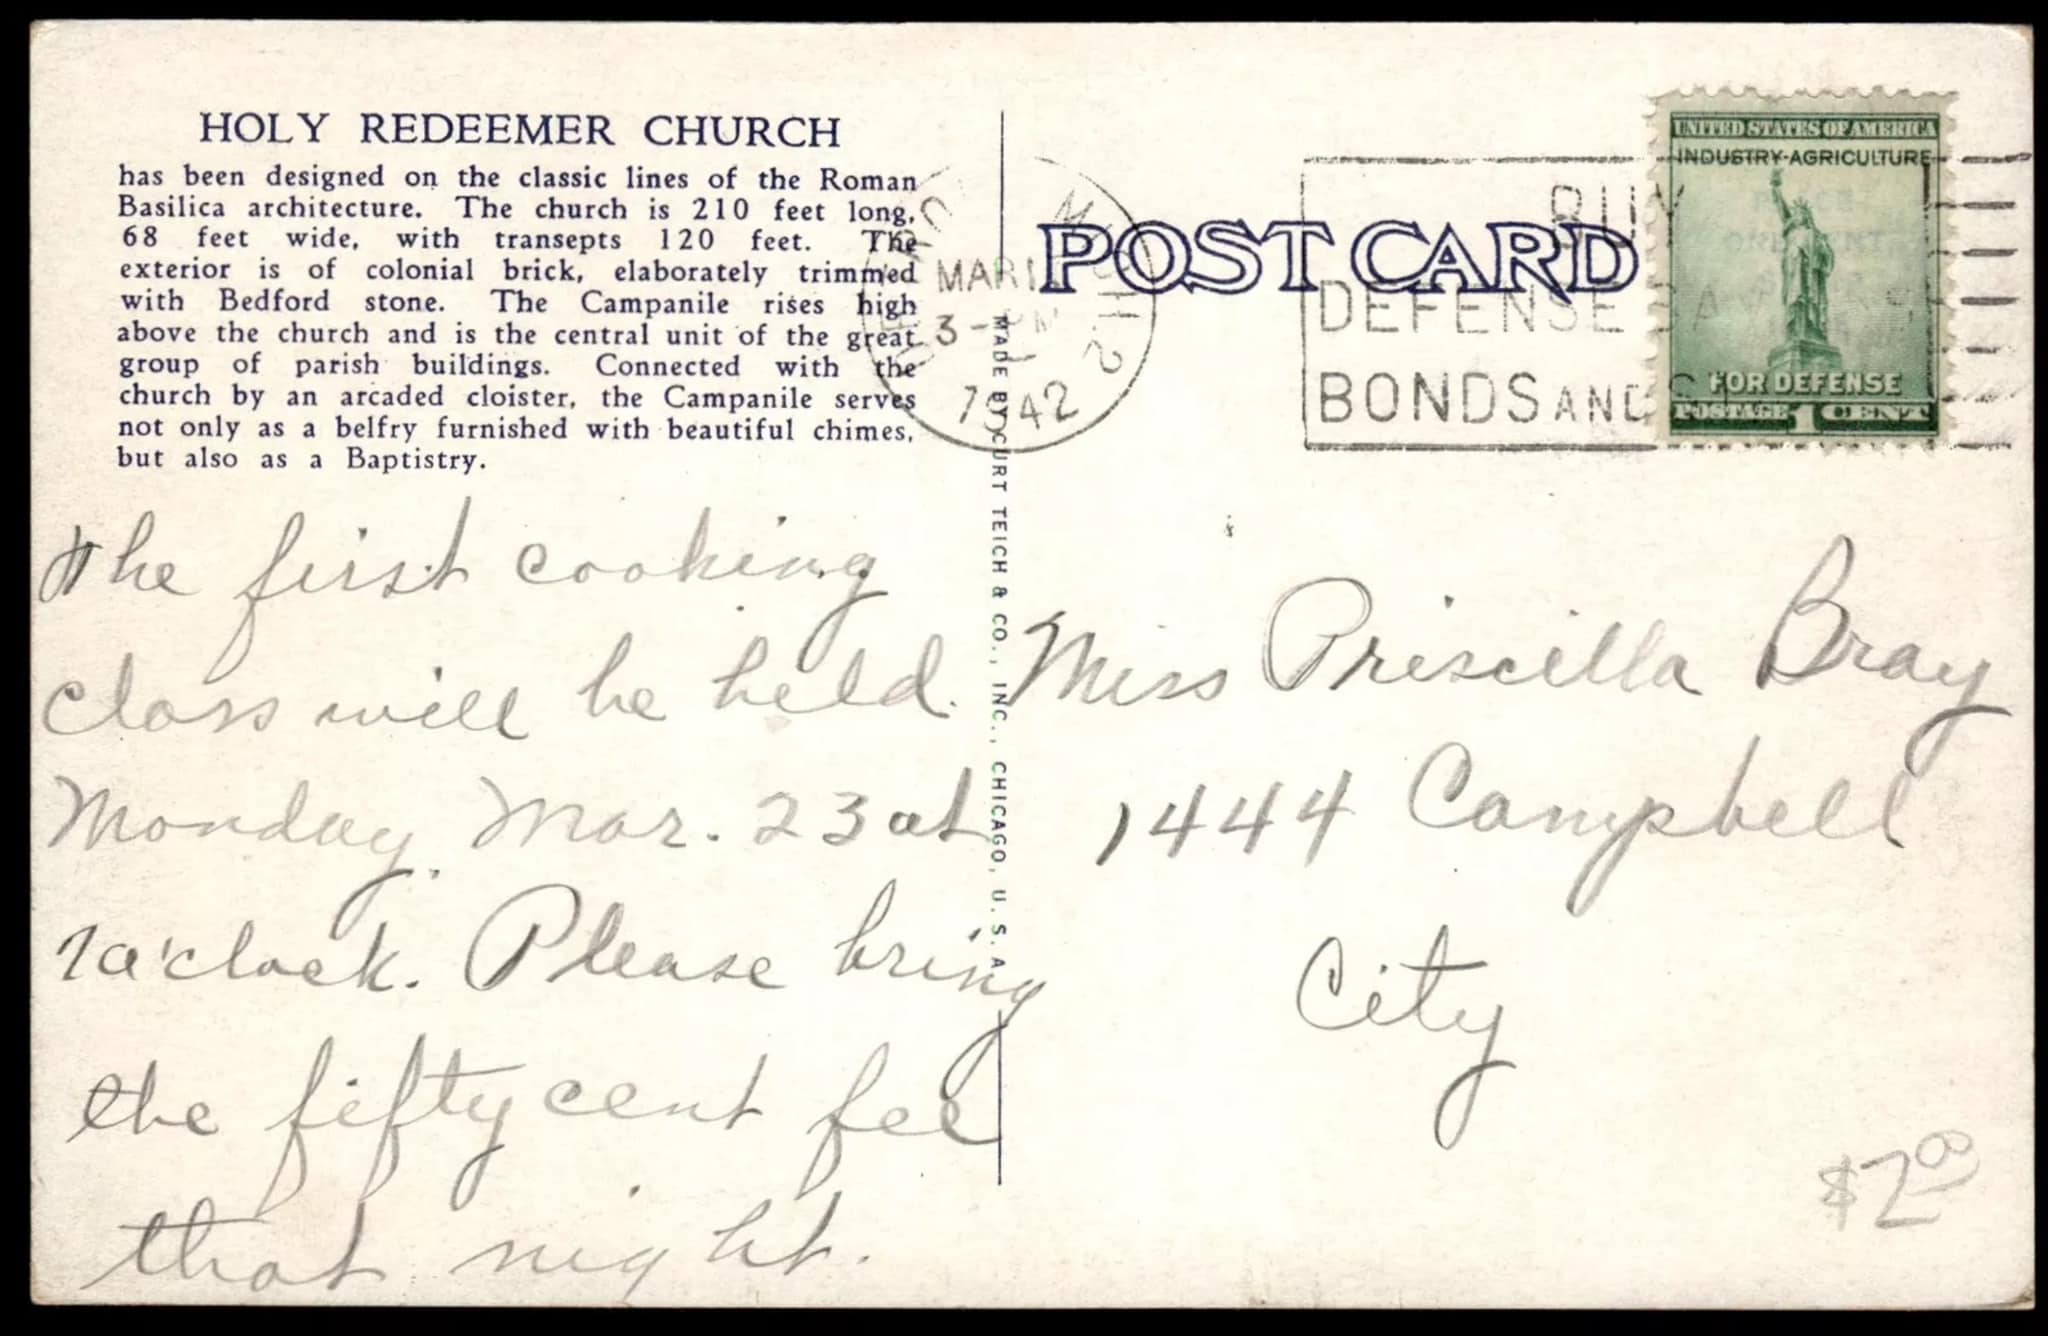 HOLY REDEEMER CHURCH
has been designed on the classic lines of the Roman
Basilica architecture. The church is 210 feet long,
68 feet wide, with transepts 120 feet. The
exterior is of colonial brick, elaborately trimmed
with Bedford stone. The Campanile rises high
above the church and is the central unit of the great
group of parish buildings. Connected with the
church by an arcaded cloister, the Campanile serves
not only as a belfry furnished with beautiful chimes,
but also as a Baptistry.
The first cooking
class will be held
Monday, Mar. 23 at
7 o'clock. Please bring
the fifty cent fee
that night.
MADE BY CURT TEICH & CO., INC., CHICAGO, U. S. A.
MICH. 2
3-PM
1942
POST CARD
BUY
DEFENSE
BONDS AND
UNITED STATES OF AMERICA
INDUSTRY-AGRICULTURE
FOR DEFENSE
POSTAGE 1 CENT
Miss Priscilla Bray
1444 Campbell
City
$2.00